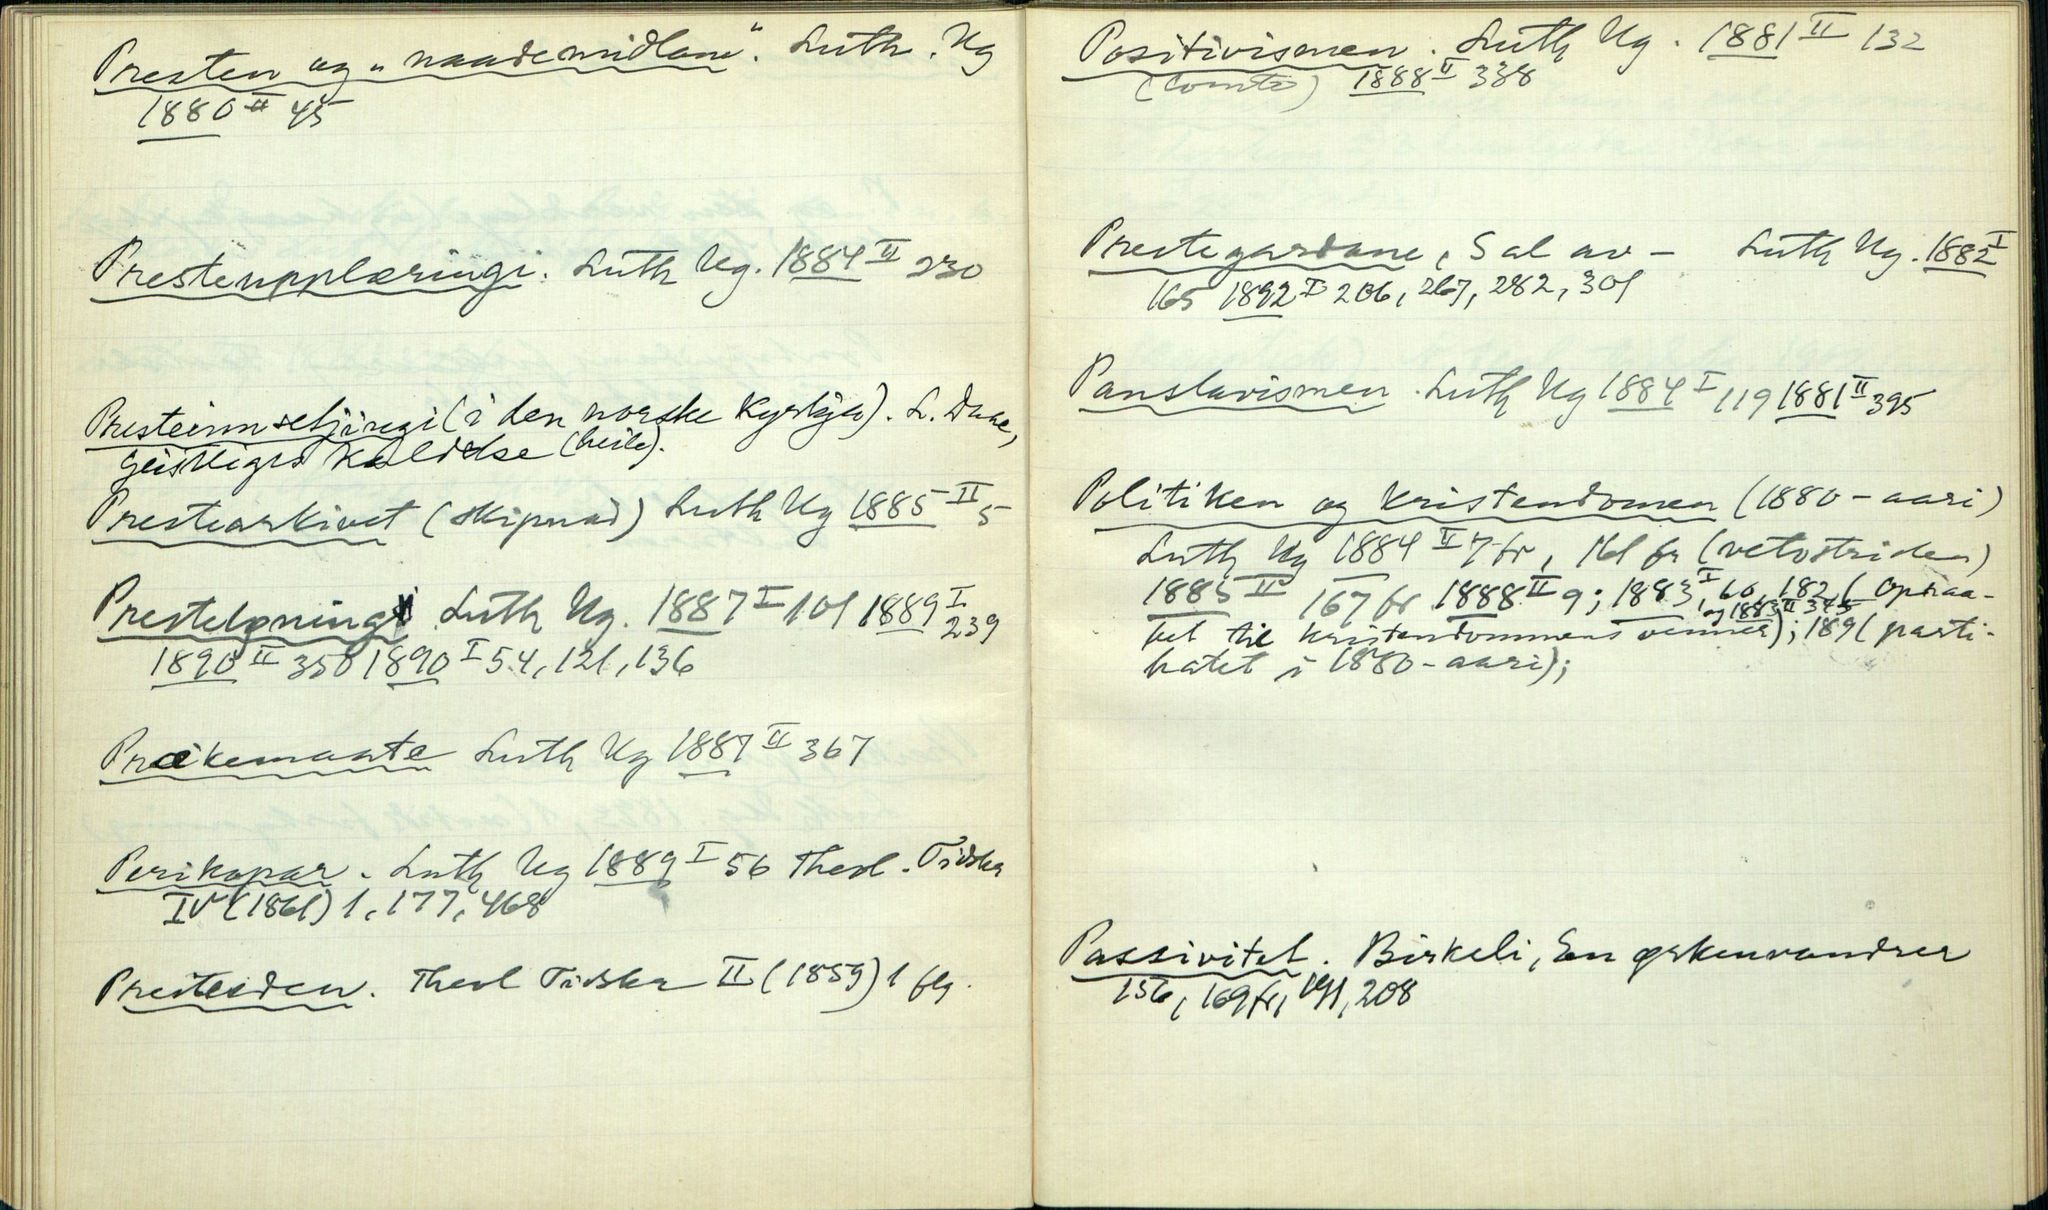 Presten og „naademidlane“. Luth. Ug
1880 II 45
Presteupplæringi. Luth Ug. 1884 II 230
Presteinnsetjingi (i den norske Kyrkja). L. Daae,
Geistliges Kaldelse (heile).
Prestearkivet (skipnad) Luth Ug 1885 II 5
Presteløningi Luth Ug. 1887 I 101 1889 I 239
1890 II 350 1890 I 54, 121, 136
Preikemaate Luth Ug 1887 II 367
Perikopar. Luth Ug 1889 I 56 Theol. Tidskr
IV (1861) 1, 177, 468
Presteeiden. Theol Tidskr II (1859) 1 flg.
Positivismen. Luth Ug. 1881 II 132
(Comte) 1888 II 338
Prestegardane, Sal av – Luth Ug. 1882 I
165 1892 I 206, 267, 282, 301
Panslavismen. Luth Ug 1884 I 119 1881 II 395
Politiken og kristendomen (1880-aari)
Luth Ug 1884 II 7 fr, 161 fr (vetostriden)
1885 II 167 fr 1888 II 9; 1883 I 60, 182 (Opraa-
og 1883 II 345
bet til kristendommens venner); 189 (parti-
hatet i 1880-aari);
Passivitet. Birkeli, En ørkenvandrer
156, 169 fr, 191, 208